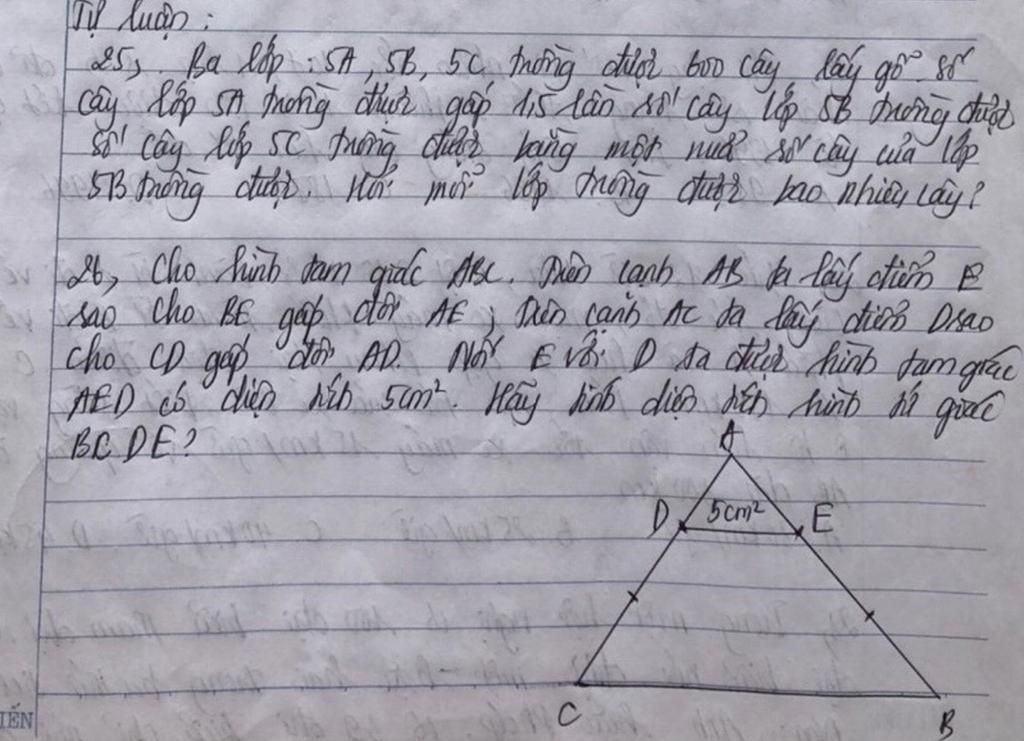 Tự luận:
25, Ba lớp: 5A, 5B, 5C trồng được 600 cây lấy gỗ. số
cây lớp 5A trồng được gấp 1,5 lần số cây lớp 5B trồng được
số cây lớp 5C trồng được bằng một nửa số cây của lớp
5B trồng được. Hỏi mỗi lớp trồng được bao nhiêu cây?
26, Cho hình tam giác ABC. Trên cạnh AB ta lấy điểm E
sao cho BE gấp đôi AE; trên cạnh AC ta lấy điểm D sao
cho CD gấp đôi AD. Nối E với D ta được hình tam giác
AED có diện tích 5cm². Hãy tính diện tích hình tứ giác
BCDE?
A
D 5cm² E
C B
IẾN